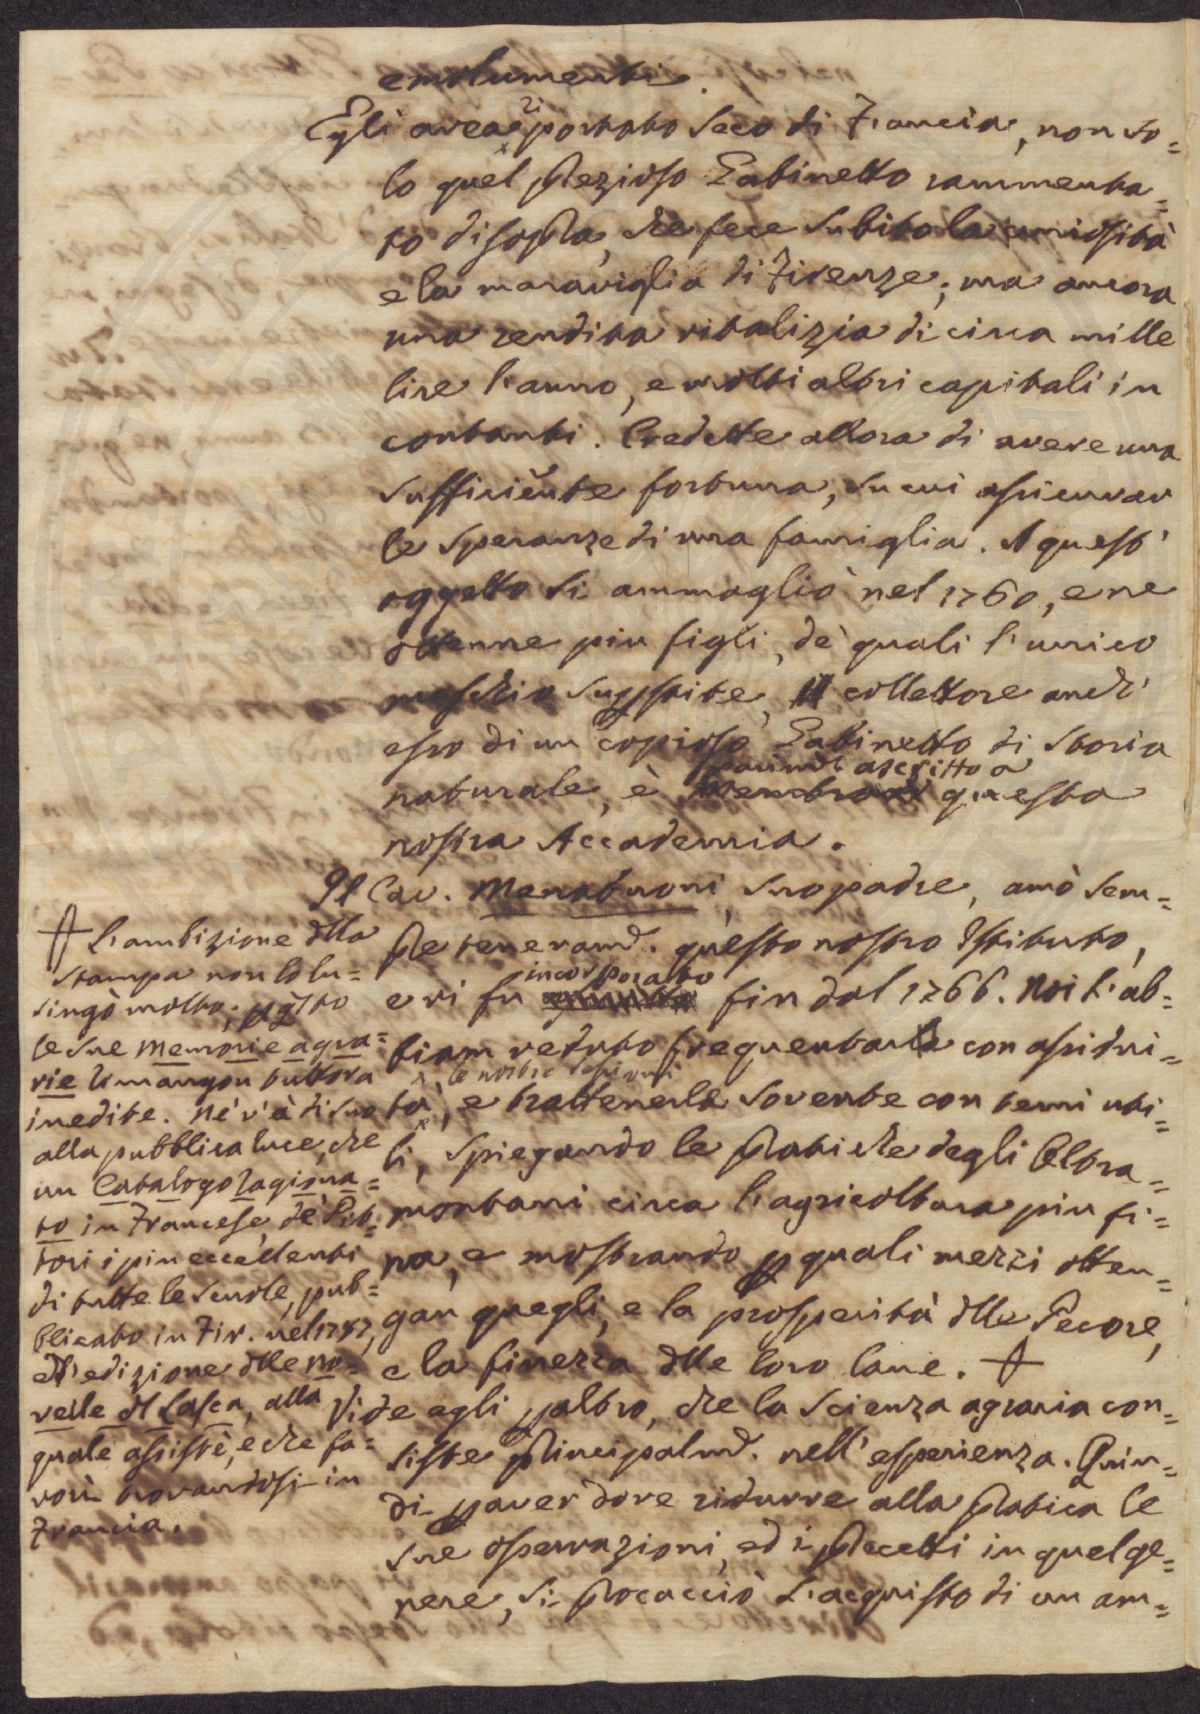 emolumenti.
Egli avea riportato seco di Francia, non so=
lo quel prezioso Gabinetto rammenta=
to disopra, che fece subito la curiosità
e la maraviglia di Firenze; ma ancora
una rendita vitalizia di circa mille
lire l'anno, e molti altri capitali in
contanti. Credette allora di avere una
sufficiente fortuna, su cui assicurar
le speranze di una famiglia. A quest'
oggetto si ammogliò nel 1760, e ne
ottenne piu figli, de' quali l'unico
maschio superstite, collettore anch'
esso di un copioso Gabinetto di Storia
parimte ascritto a
naturale, è membro di questa
nostra Accademia.
Il Cav. Menabuoni, suo padre, amò sem=
pre teneramte. questo nostro Istituto,
incorporato
e vi fu fin dal 1766. Noi l'ab=
biam veduto frequentarle con assidui=
le nostre sessioni
tà, e trattenerle sovente con temi uti=
li, spiegando le pratiche degli Oltra=
montani circa l'agricoltura piu fi=
na, e mostrando p quali mezzi otten=
gan quegli, e la prosperità dlle Pecore,
e la finezza dlle loro lane. +
Vide egli p altro, che la Scienza agraria con=
siste principalmte. nell'esperienza. Quin=
di p aver dove ridurre alla pratica le
sue osservazioni, ed i precetti in quel ge=
nere, si procacciò l'acquisto di un am=
+ L'ambizione dlla
stampa non lo lu=
singò molto; p qsto
le sue Memorie agra=
rie rimangon tuttora
inedite. Nè v'à di suo
alla pubblica luce, che
un Catalogo ragiona=
to in Francese de' Pit=
tori i piu eccellenti
di tutte le scuole, pub=
blicato in Fir. nel 1787,
e l'edizione dlle No=
velle dl Lasca, alla
quale assistè, e che fa=
vorì trovandosi in
Francia.